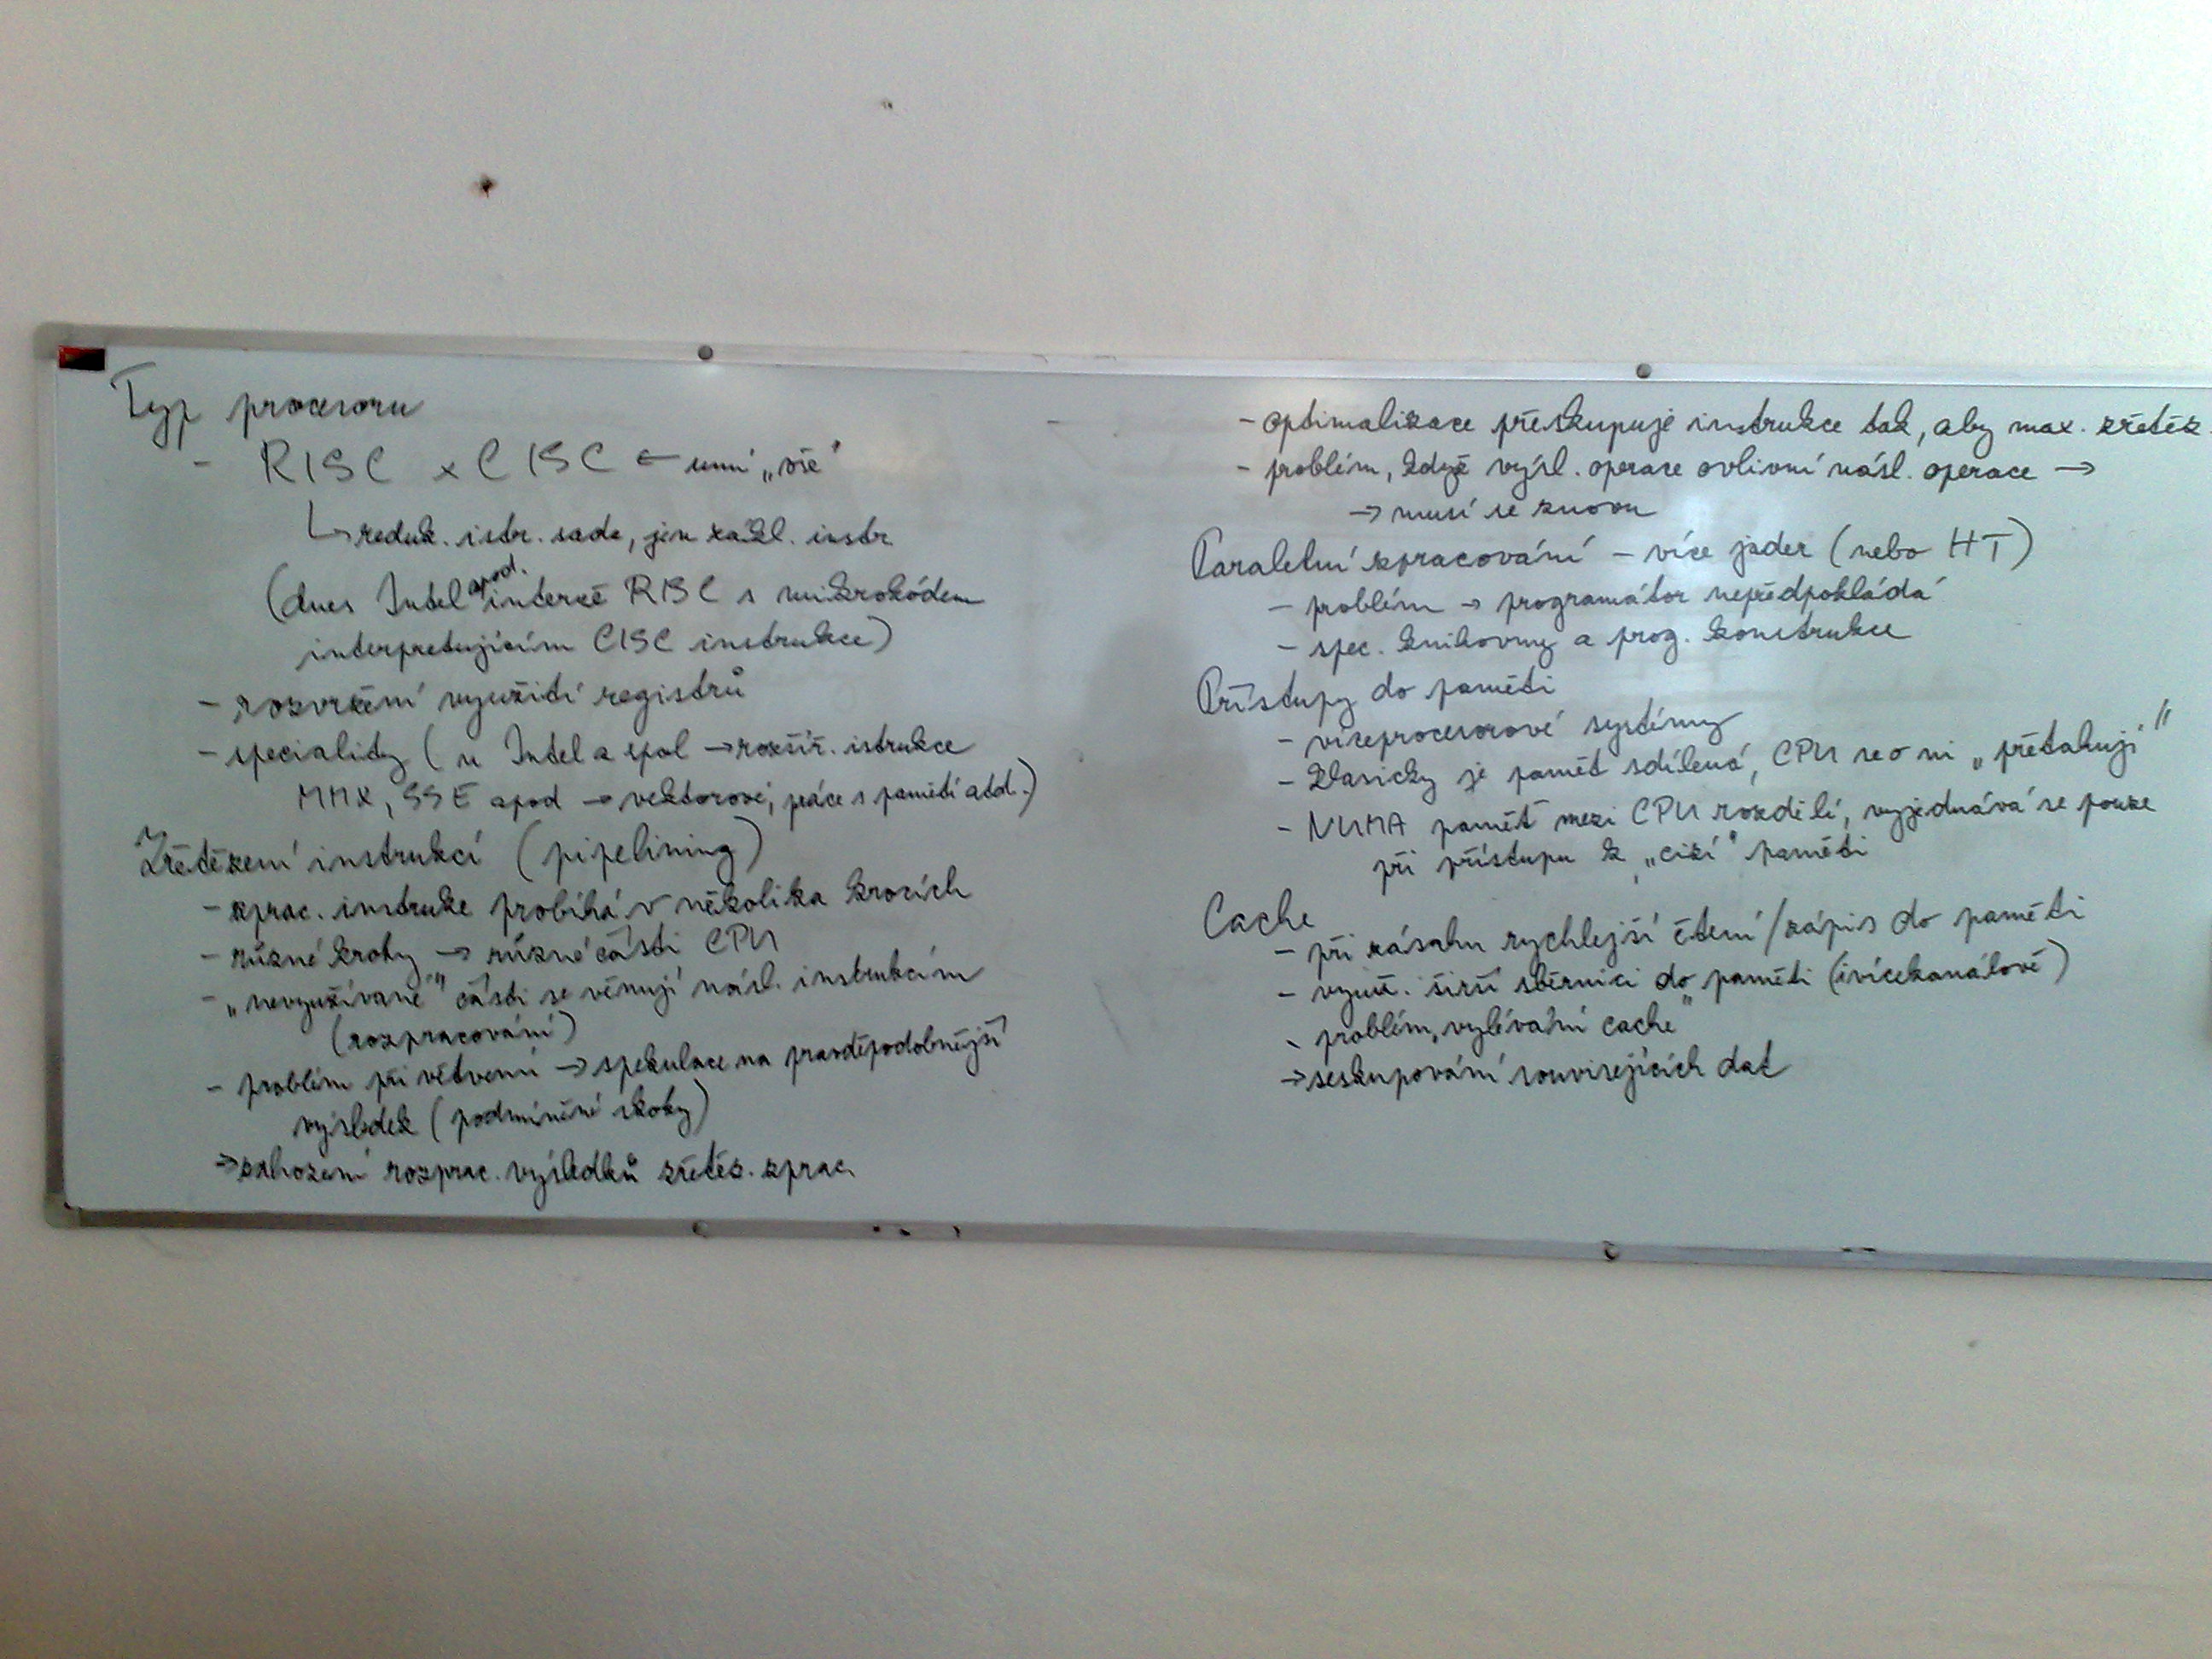 Typ procesoru
- RISC x CISC ← umí „vše"
↳ reduk. istr. sada, jen zákl. instr.
(dnes Intel apod. interně RISC s mikrokódem
interpretujícím CISC instrukce)
- rozvržení využití registrů
- speciality (u Intel a spol → rozšíř. istrukce
MMX, SSE apod → vektorové, práce s pamětí atd.)
Zřetězení instrukcí (pipelining)
- zprac. instruke probíhá v několika krocích
- různé kroky → různé části CPU
- „nevyužívané" části se věnují násl. instrukcím
(rozpracování)
- problém při větvení → spekulace na pravděpodobnější
výsledek (podmíněné skoky)
→ zahození rozprac. výsledků zřetěz. zprac.
- optimalizace přeskupuje instrukce tak, aby max. zřetěz.
- problém, když výsl. operace ovlivní násl. operace →
→ musí se znovu
Paralelní zpracování - více jader (nebo HT)
- problém → programátor nepředpokládá
- spec. knihovny a prog. konstrukce
Přístupy do paměti
- víceprocesorové systémy
- klasicky je paměť sdílená, CPU se o ni „přetahují"
- NUMA paměť mezi CPU rozdělí, vyjednává se pouze
při přístupu k „cizí" paměti
Cache
- při zásahu rychlejší čtení/zápis do paměti
- využ. širší sběrnici do paměti (vícekanálově)
- problém „vylévání cache"
→ seskupování souvisejících dat